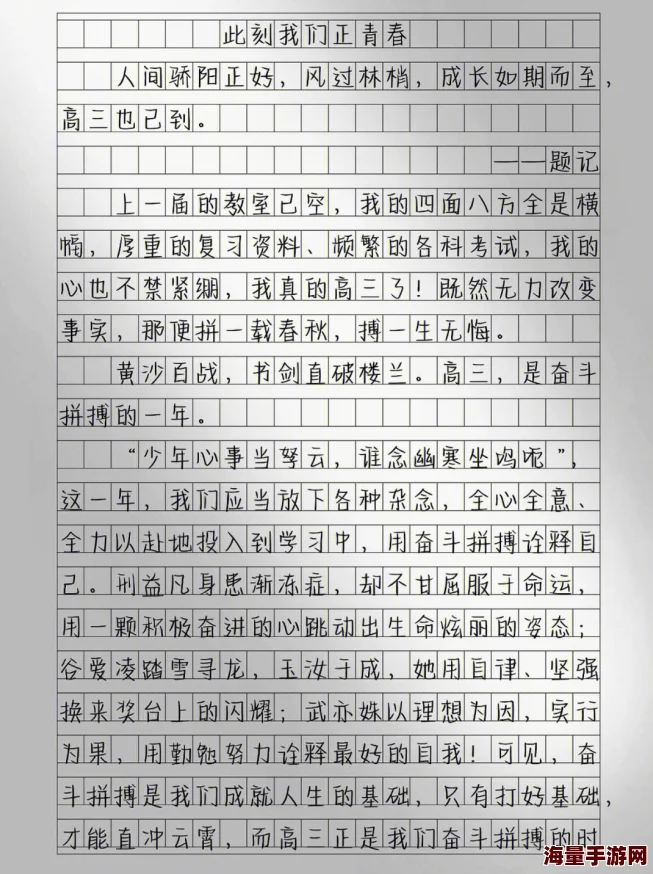 此刻我们正青春
人间骄阳正好，风过林梢，成长如期而至，
高三也已到。
——题记
上一届的教室已空，我的四面八方全是横
幅，厚重的复习资料、频繁的各科考试，我的
心也不禁紧绷，我真的高三了！既然无力改变
事实，那便拼一载春秋，搏一生无悔。
黄沙百战，书剑直破楼兰。高三，是奋斗
拼搏的一年。
“少年心事当拏云，谁念幽寒坐呜呃”，
这一年，我们应当放下各种杂念，全心全意、
全力以赴地投入到学习中，用奋斗拼搏诠释自
己。刑益凡身患渐冻症，却不甘屈服于命运，
用一颗积极奋进的心跳动出生命炫丽的姿态；
谷爱凌踏雪寻龙，玉汝于成，她用自律、坚强
换来奖台上的闪耀；武亦姝以理想为因，实行
为果，用勤勉努力诠释最好的自我！可见，奋
斗拼搏是我们成就人生的基础，只有打好基础，
才能直冲云霄，而高三正是我们奋斗拼搏的时
海量手游网